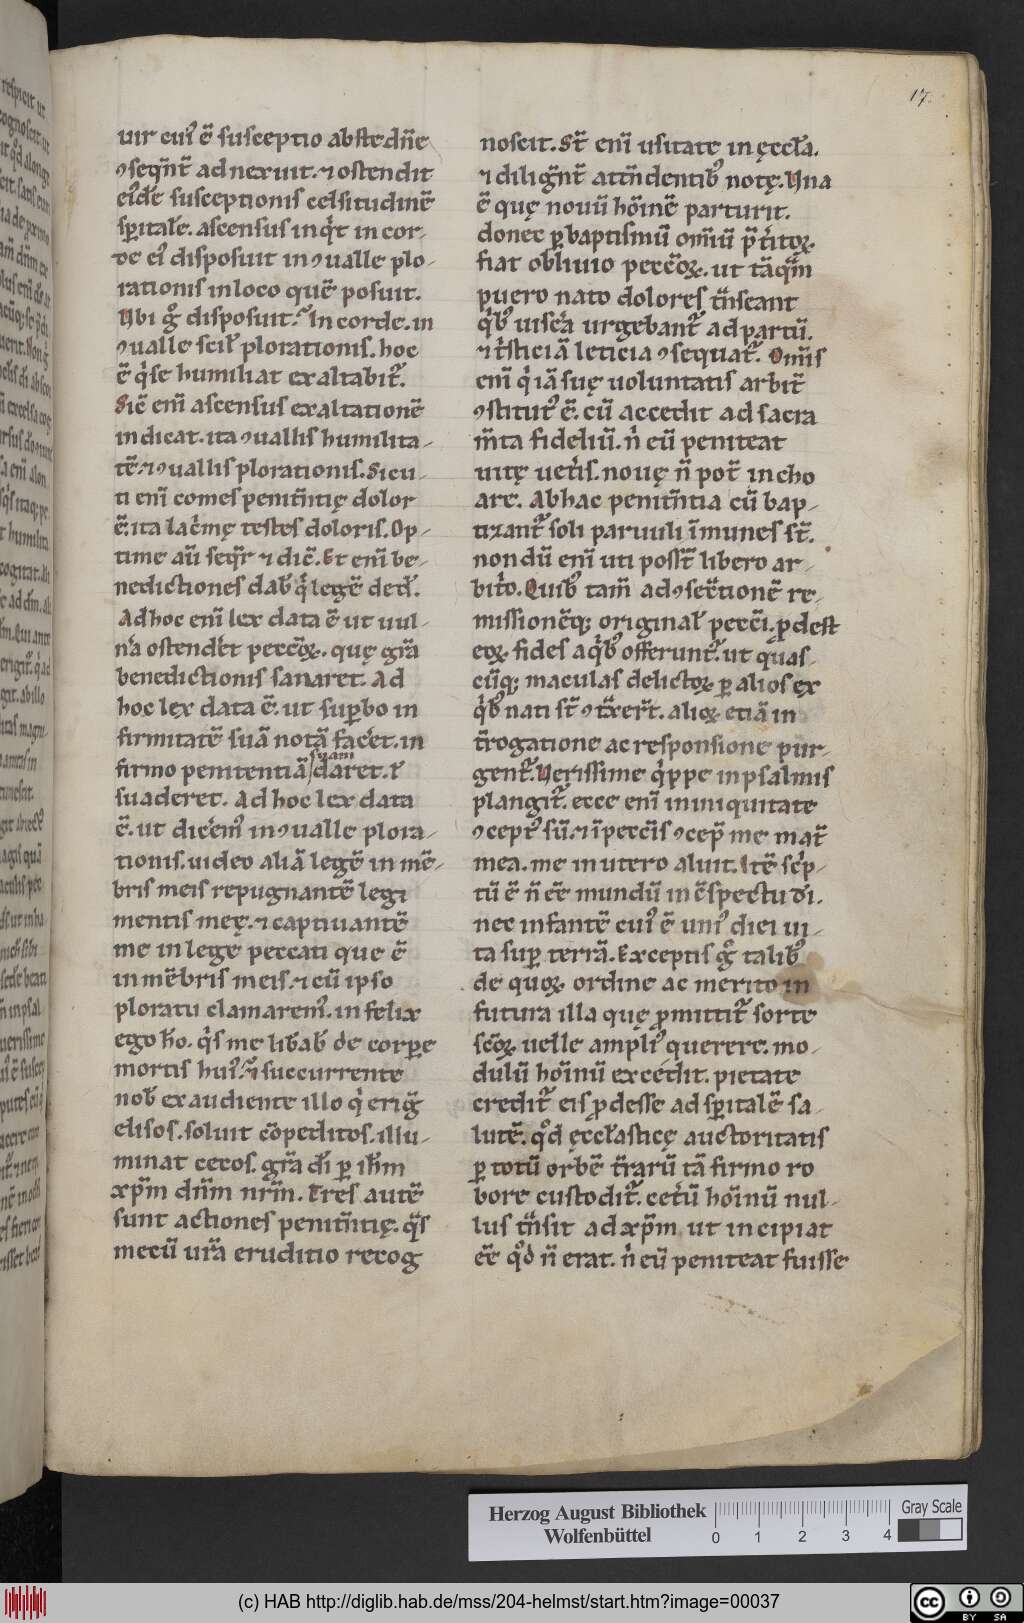 17.
uir cuiꝰ ē susceptio abste dn̄e
ꝯseqn̄t̄ adnexuit. ⁊ ostendit
eiꝰdē susceptionis celsitudinē
sp̄italē. ascensus inqͥt in cor-
de eiꝰ disposuit in ꝯualle plo-
rationis in loco quē posuit.
Ubi gͦ disposuit. In corde. in
ꝯualle scil̄ plorationis. hoc
ē qͥ se humiliat exaltabit᷑.
Sic̄ eni᷑ ascensus exaltationē
indicat. ita ꝯuallis humilita-
tē. ⁊ ꝯuallis plorationis. Sicu-
ti eni᷑ comes penitn̄tię dolor
ē. ita lac̄mę testes doloris. Op-
time au᷑ seqr᷑ ⁊ dic̄. Et eni᷑ be-
nedictiones dab̄ qͥ legē ded̄.
Ad hoc eni᷑ lex data ē ut uul-
n̄a ostend̄et pecc̄oꝝ. quę gr̄a
benedictionis sanaret. Ad
hoc lex data ē. ut suꝑbo in
firmitatē suā notā fac̄et. in
firmo penitentiā suam daret. ł
suaderet. Ad hoc lex data
ē. ut dic̄emꝰ in ꝯualle plora-
tionis. uideo aliā legē in mē-
bris meis repugnantē legi
mentis meę. ⁊ captiuantē
me in legē peccati que ē
in mēbris meis. ⁊ cū ipso
ploratu clamaremꝰ. infelix
ego ho᷑. qͥs me lib̄ab̄ de corꝑe
mortis huiꝰ. ut̄ succurrente
nob̄ exaudiente illo qͥ eriḡ
elisos. soluit cōpeditos. illu-
minat cecos. gr̄a di᷑ ꝑ ih̄m
xp̄m dn̄m nr̄m. Tres autē
sunt actiones penitn̄tię. qͣs
mecū ur̄a eruditio recog
noscit. St̄ eni᷑ usitate in ęccl̄a.
⁊ dilign̄t̄ attn̄dentibꝰ notę. Una
ē quę nouū ho᷑inē parturit.
donec ꝑ baptismū omi᷑ū p̄t̄itoꝝ
fiat obliuio pecc̄oꝝ. ut tāqͣm
puero nato dolores tn̄seant
qͥbꝰ uisc̄a urgebant᷑ ad partū.
⁊ tͥsticiā leticia ꝯsequat᷑. Omi᷑s
eni᷑ qͥ iā suę uoluntatis arbit̄
ꝯstitutꝰ ē. cū accedit ad sacra
m̄ta fideliū. nͥ eū peniteat
uitę uet̄is. nouę n̄ pot̄ incho
are. Ab hac penitn̄tia cū bap-
tizant᷑ soli paruuli īmunes st̄.
nondū eni᷑ uti possn̄t libero ar-
bit̄o. Quibꝰ tam̄ ad ꝯsec̄tionē re-
missionēqꝫ original̄ pecc̄i. ꝓdest
eoꝝ fides a qͥbꝰ offerunt᷑. ut quas-
cūqꝫ maculas delictoꝝ ꝑ alios ęx
qͥbꝰ nati st̄ ꝯtͣxer̄t. alioꝝ etiā in
t̄rogatione ac responsione pur-
gent᷑. Uerissime qͥppe in psalmis
plangit᷑. ecce eni᷑ in iniquitate
ꝯceptꝰ sū. ⁊ ī pecc̄is ꝯcep̄ me mat̄
mea. me in utero aluit. Itē sc̄p-
tū ē n̄ eē mundū in c̄spectu di᷑.
nec infantē cuiꝰ ē uniꝰ diei ui-
ta suꝑ terrā. Exceptis gͦ talibꝰ
de quoꝝ ordine ac merito in
futura illa quę ꝓmittit᷑ sorte
sc̄oꝝ uelle ampliꝰ querere. mo-
dulū ho᷑inū excedit. pietate
credit᷑ eis ꝓdesse ad sp̄italē sa-
lutē. qͦd ęccl̄asticę auctoritatis
ꝑ totū orbē t̄rarū tā firmo ro
bore custodit᷑. cet̄ū ho᷑inū nul-
lus tn̄sit ad xp̄m ut incipiat
eē qͦd n̄ erat. nͥ eū peniteat fuisse
Herzog August Bibliothek
Wolfenbüttel
0 1 2 3 4
Gray Scale
(c) HAB http://diglib.hab.de/mss/204-helmst/start.htm?image=00037
cc BY SA